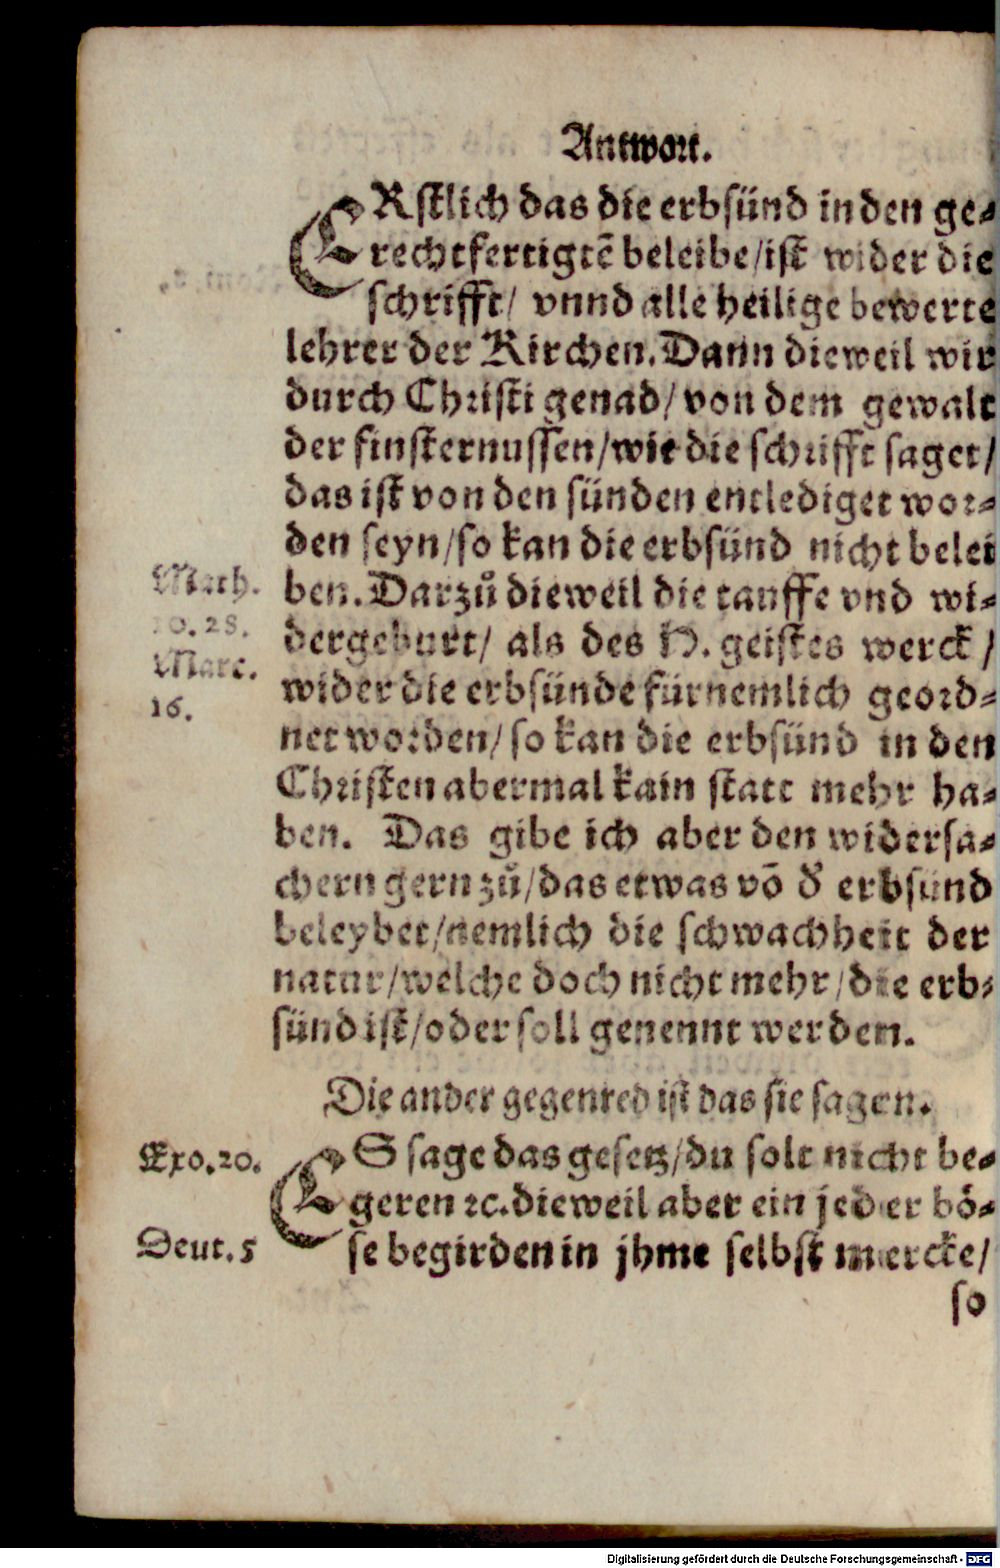 Antwort.
ERstlich das die erbsünd in den ge-
rechtfertigtẽ beleibe/ist wider die
schrifft/ vnnd alle heilige bewerte
lehrer der Kirchen. Dann dieweil wir
durch Christi genad/ von dem gewalt
der finsternussen/wie die schrifft saget/
das ist von den sünden entlediget wor-
den seyn/so kan die erbsünd nicht belei
ben. Darzů dieweil die tauffe vnd wi-
dergeburt/ als des H. geistes werck/
wider die erbsünde fürnemlich geord-
net worden/ so kan die erbsünd in den
Christen abermal kain statt mehr ha-
ben. Das gibe ich aber den widersa-
chern gern zů/das etwas võ d' erbsünd
beleybet/nemlich die schwachheit der
natur/welche doch nicht mehr/die erb-
sünd ist/oder soll genennt werden.
Math.
10. 28.
Marc.
16.
Die ander gegenred ist das sie sagen.
ES sage das gesetz/du solt nicht be-
geren ꝛc. dieweil aber ein jeder bö-
se begirden in jhme selbst mercke/
so
Exo. 20.
Deut. 5
Digitalisierung gefördert durch die Deutsche Forschungsgemeinschaft - DFG